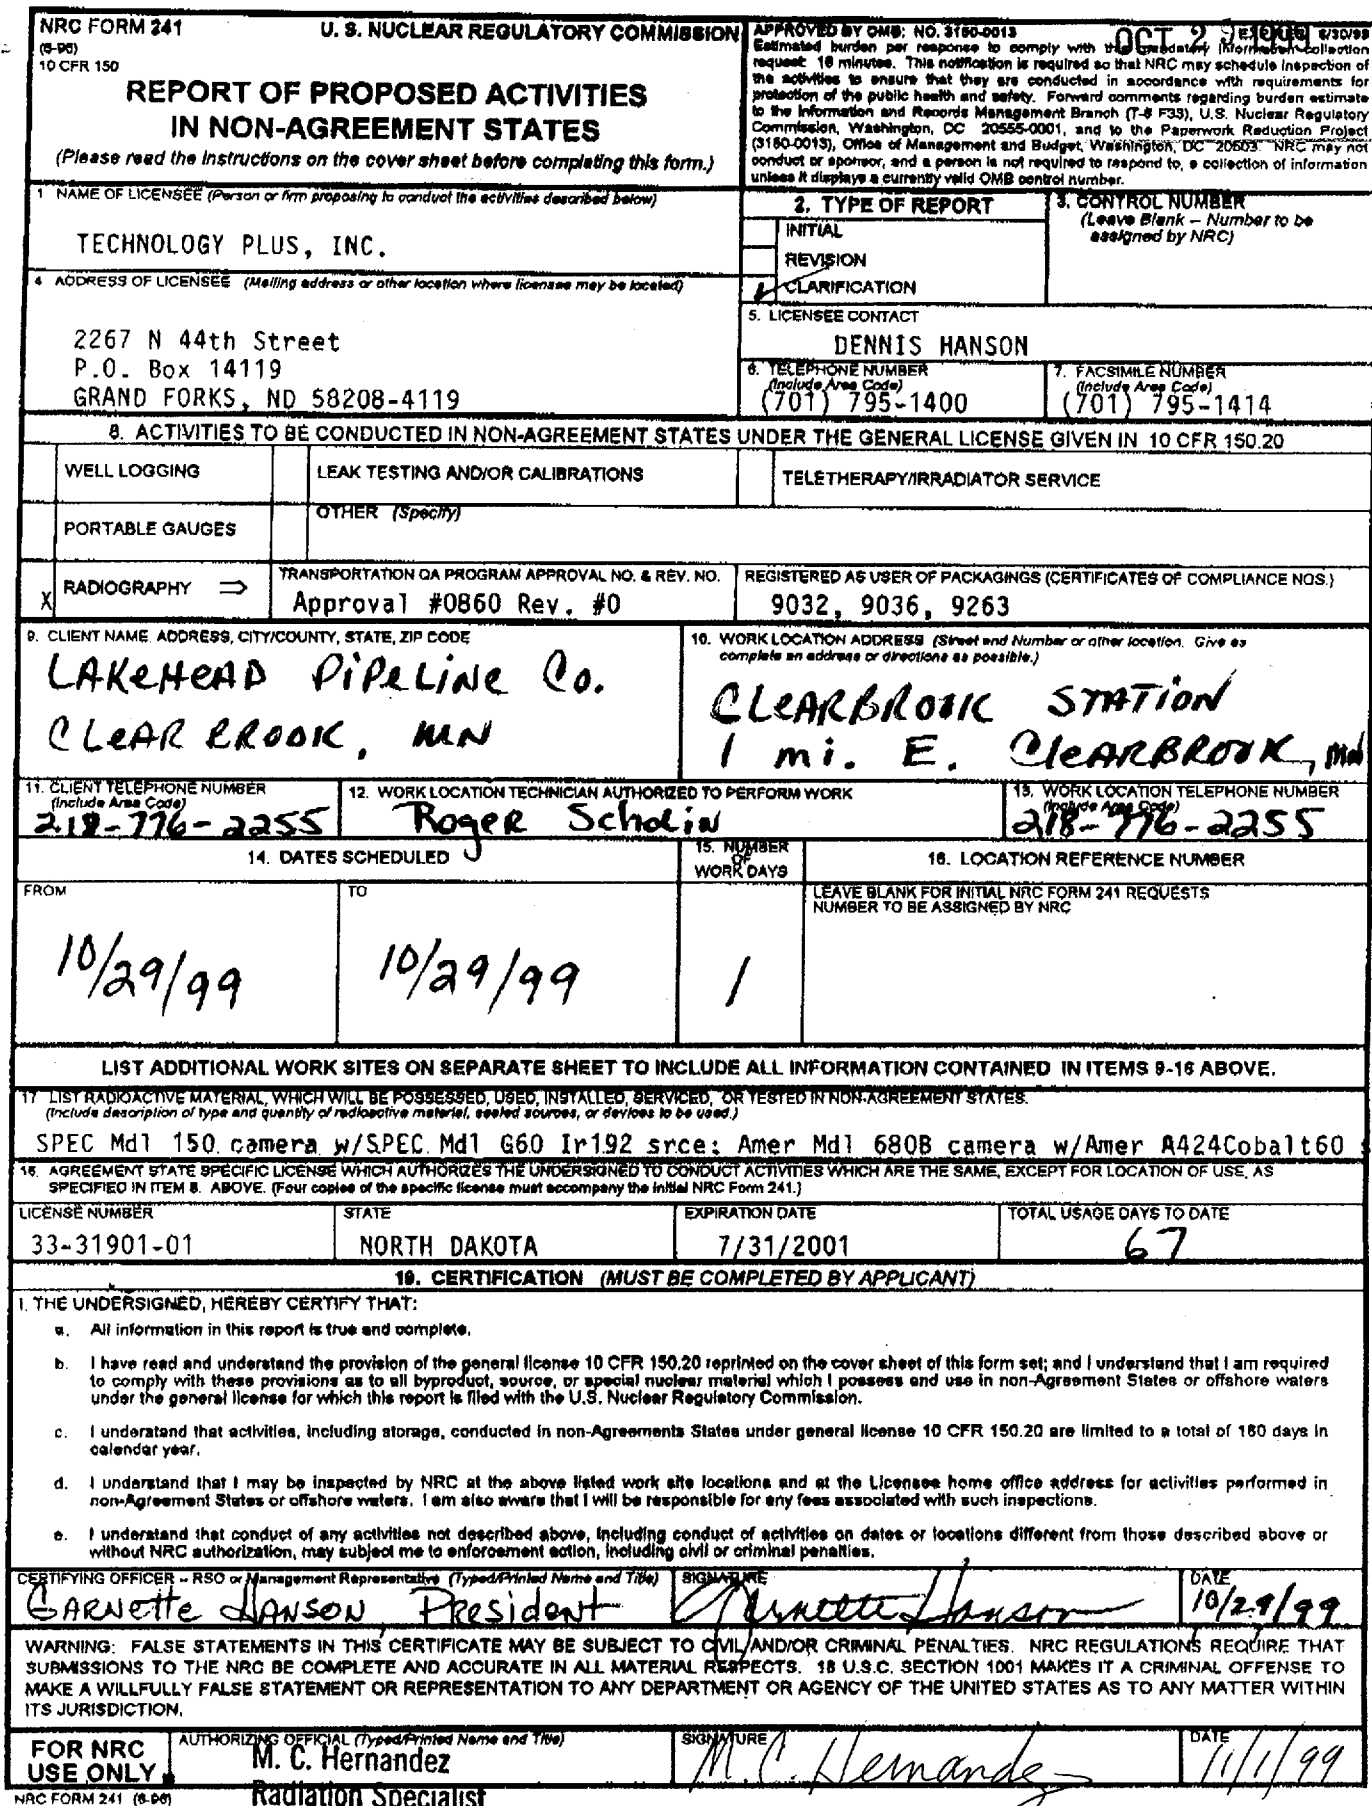 NRC FORM 241
(6-96)
10 CFR 150
U. S. NUCLEAR REGULATORY COMMISSION
REPORT OF PROPOSED ACTIVITIES
IN NON-AGREEMENT STATES
(Please read the instructions on the cover sheet before completing this form.)
APPROVED BY OMB: NO. 3150-0013
OCT 29 1999
6/30/99
Estimated burden per response to comply with this mandatory information collection
request: 16 minutes. This notification is required so that NRC may schedule inspection of
the activities to ensure that they are conducted in accordance with requirements for
protection of the public health and safety. Forward comments regarding burden estimate
to the Information and Records Management Branch (T-6 F33), U.S. Nuclear Regulatory
Commission, Washington, DC 20555-0001, and to the Paperwork Reduction Project
(3150-0013), Office of Management and Budget, Washington, DC 20503. NRC may not
conduct or sponsor, and a person is not required to respond to, a collection of information
unless it displays a currently valid OMB control number.
1 NAME OF LICENSEE (Person or firm proposing to conduct the activities described below)
TECHNOLOGY PLUS, INC.
2. TYPE OF REPORT
INITIAL
REVISION
CLARIFICATION
3. CONTROL NUMBER
(Leave Blank – Number to be
assigned by NRC)
4 ADDRESS OF LICENSEE (Mailing address or other location where licensee may be located)
2267 N 44th Street
P.O. Box 14119
GRAND FORKS, ND 58208-4119
5. LICENSEE CONTACT
DENNIS HANSON
6. TELEPHONE NUMBER
(Include Area Code)
(701) 795-1400
7. FACSIMILE NUMBER
(Include Area Code)
(701) 795-1414
8. ACTIVITIES TO BE CONDUCTED IN NON-AGREEMENT STATES UNDER THE GENERAL LICENSE GIVEN IN 10 CFR 150.20
WELL LOGGING
LEAK TESTING AND/OR CALIBRATIONS
TELETHERAPY/IRRADIATOR SERVICE
PORTABLE GAUGES
OTHER (Specify)
X RADIOGRAPHY ⇒
TRANSPORTATION QA PROGRAM APPROVAL NO. & REV. NO.
Approval #0860 Rev. #0
REGISTERED AS USER OF PACKAGINGS (CERTIFICATES OF COMPLIANCE NOS.)
9032, 9036, 9263
9. CLIENT NAME, ADDRESS, CITY/COUNTY, STATE, ZIP CODE
LAKeHeAD PiPeLiNe Co.
CLeAR BROOK, MN
10. WORK LOCATION ADDRESS (Street and Number or other location. Give as
complete an address or directions as possible.)
CLeARBROOK STATiON
1 mi. E. CleARBROOK, MN
11. CLIENT TELEPHONE NUMBER
(Include Area Code)
218-776-2255
12. WORK LOCATION TECHNICIAN AUTHORIZED TO PERFORM WORK
Roger Scholin
13. WORK LOCATION TELEPHONE NUMBER
(Include Area Code)
218-776-2255
14. DATES SCHEDULED
15. NUMBER
OF
WORK DAYS
16. LOCATION REFERENCE NUMBER
FROM
10/29/99
TO
10/29/99
1
LEAVE BLANK FOR INITIAL NRC FORM 241 REQUESTS
NUMBER TO BE ASSIGNED BY NRC
LIST ADDITIONAL WORK SITES ON SEPARATE SHEET TO INCLUDE ALL INFORMATION CONTAINED IN ITEMS 9-16 ABOVE.
17 LIST RADIOACTIVE MATERIAL, WHICH WILL BE POSSESSED, USED, INSTALLED, SERVICED, OR TESTED IN NON-AGREEMENT STATES.
(Include description of type and quantity of radioactive material, sealed sources, or devices to be used.)
SPEC Mdl 150 camera w/SPEC Mdl G60 Ir192 srce; Amer Mdl 680B camera w/Amer A424Cobalt60 s
18. AGREEMENT STATE SPECIFIC LICENSE WHICH AUTHORIZES THE UNDERSIGNED TO CONDUCT ACTIVITIES WHICH ARE THE SAME, EXCEPT FOR LOCATION OF USE, AS
SPECIFIED IN ITEM 8. ABOVE. (Four copies of the specific license must accompany the initial NRC Form 241.)
LICENSE NUMBER
33-31901-01
STATE
NORTH DAKOTA
EXPIRATION DATE
7/31/2001
TOTAL USAGE DAYS TO DATE
67
19. CERTIFICATION (MUST BE COMPLETED BY APPLICANT)
I, THE UNDERSIGNED, HEREBY CERTIFY THAT:
a. All information in this report is true and complete.
b. I have read and understand the provision of the general license 10 CFR 150.20 reprinted on the cover sheet of this form set; and I understand that I am required
to comply with these provisions as to all byproduct, source, or special nuclear material which I possess and use in non-Agreement States or offshore waters
under the general license for which this report is filed with the U.S. Nuclear Regulatory Commission.
c. I understand that activities, including storage, conducted in non-Agreements States under general license 10 CFR 150.20 are limited to a total of 180 days in
calendar year.
d. I understand that I may be inspected by NRC at the above listed work site locations and at the Licensee home office address for activities performed in
non-Agreement States or offshore waters. I am also aware that I will be responsible for any fees associated with such inspections.
e. I understand that conduct of any activities not described above, including conduct of activities on dates or locations different from those described above or
without NRC authorization, may subject me to enforcement action, including civil or criminal penalties.
CERTIFYING OFFICER – RSO or Management Representative (Typed/Printed Name and Title)
GARNette HANSON, President
SIGNATURE
Garnette Hanson
DATE
10/29/99
WARNING: FALSE STATEMENTS IN THIS CERTIFICATE MAY BE SUBJECT TO CIVIL AND/OR CRIMINAL PENALTIES. NRC REGULATIONS REQUIRE THAT
SUBMISSIONS TO THE NRC BE COMPLETE AND ACCURATE IN ALL MATERIAL RESPECTS. 18 U.S.C. SECTION 1001 MAKES IT A CRIMINAL OFFENSE TO
MAKE A WILLFULLY FALSE STATEMENT OR REPRESENTATION TO ANY DEPARTMENT OR AGENCY OF THE UNITED STATES AS TO ANY MATTER WITHIN
ITS JURISDICTION.
FOR NRC
USE ONLY
AUTHORIZING OFFICIAL (Typed/Printed Name and Title)
M. C. Hernandez
Radiation Specialist
SIGNATURE
M. C. Hernandez
DATE
11/1/99
NRC FORM 241 (6-96)